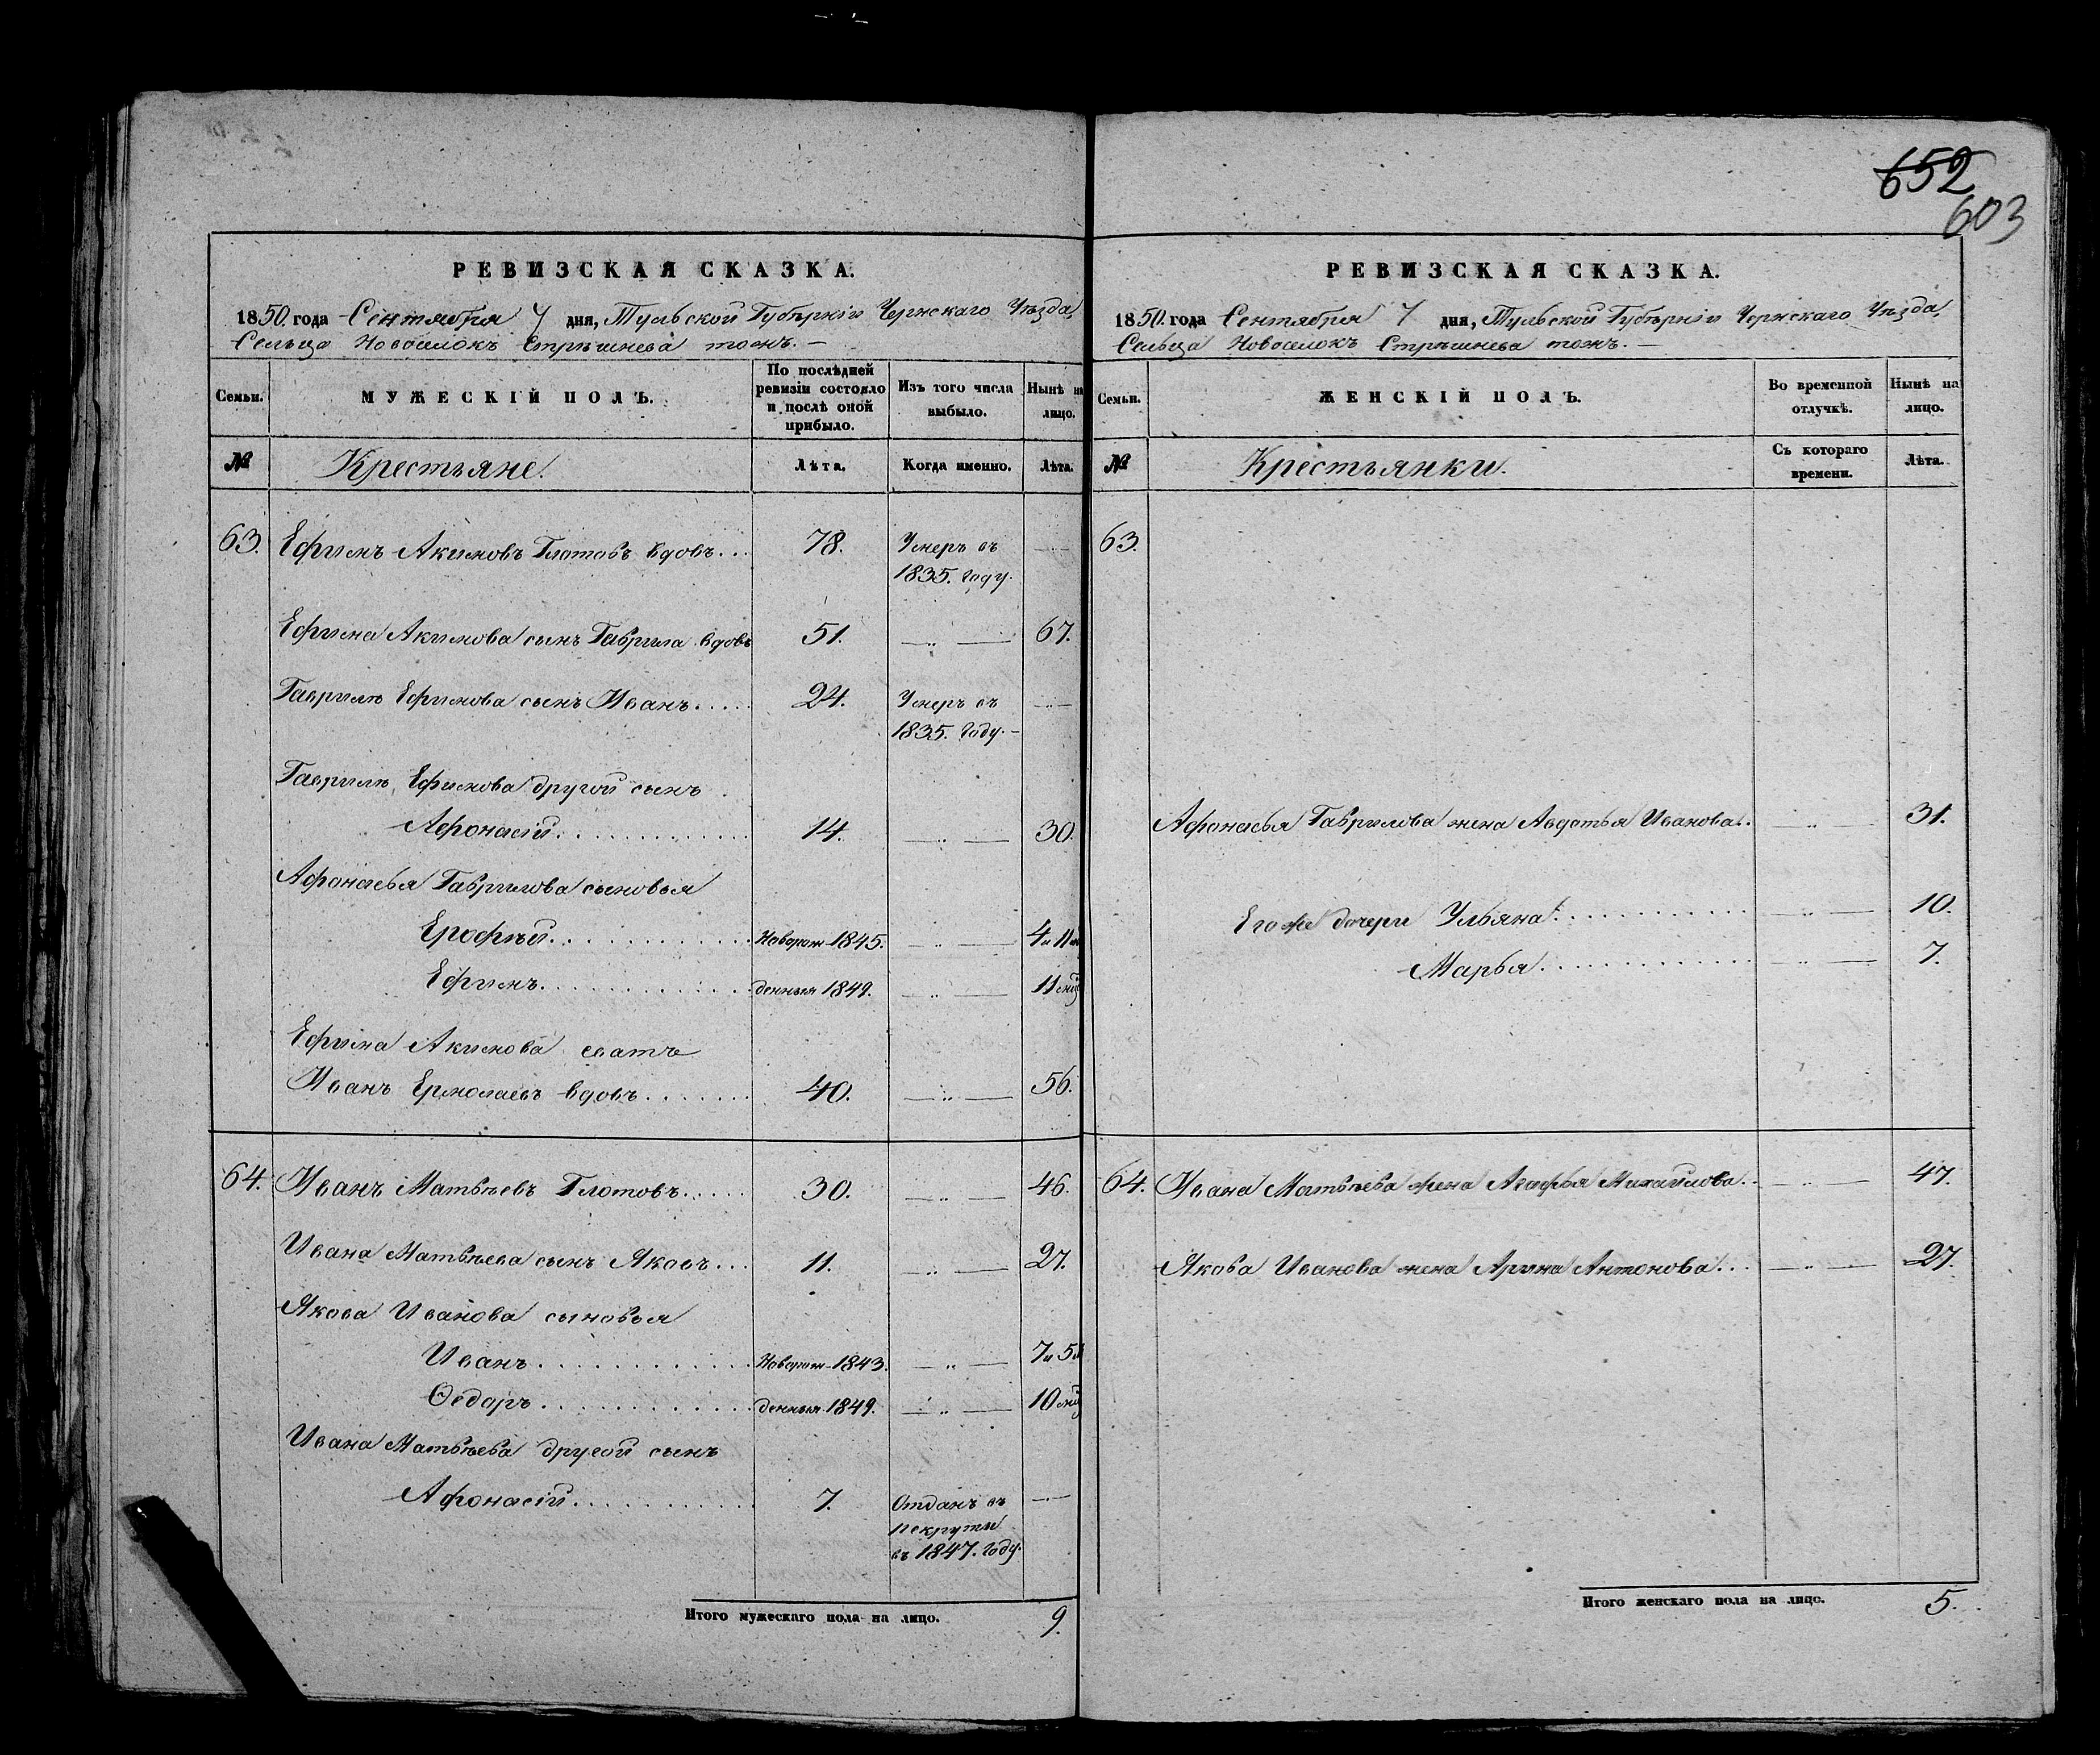 652
603
РЕВИЗСКАЯ СКАЗКА.
1850. года Сентября 7 дня, Тульской Губѣрніи Чернскаго Уѣзда,
Сельца Новоселокъ Стрѣшнева тожъ. —
Семьи.
МУЖЕСКІЙ ПОЛЪ.
По послѣдней
ревизіи состояло
и послѣ оной
прибыло.
Изъ того числа
выбыло.
Нынѣ на
лицо.
№
Крестьяне.
Лѣта.
Когда именно.
Лѣта.
63. Ефимъ Акимовъ Глотовъ вдовъ... 78. Умеръ въ —
1835. году.
Ефима Акимова сынъ Гаврила вдовъ 51. —„— 67.
Гаврилы Ефимова сынъ Иванъ..... 24. Умеръ въ —
1835. году. —
Гаврилы Ефимова другой сынъ
Афонасій............ 14. —„— 30.
Афонасья Гаврилова сыновья
Ерофѣй............ Новорож- 1845. —„— 4 и 11 м
Ефимъ............ денныя 1849. —„— 11 мц
Ефима Акимова сватъ
Иванъ Ермолаевъ вдовъ....... 40. —„— 56.
64. Иванъ Матвѣевъ Глотовъ..... 30. —„— 46.
Ивана Матвѣева сынъ Яковъ... 11. —„— 27.
Якова Иванова сыновья
Иванъ............ Новорож- 1843. —„— 7 и 5
Ѳедоръ............ денныя 1849. —„— 10 мц
Ивана Матвѣева другой сынъ
Афонасій.......... 7. Отданъ въ —
рекруты
въ 1847. году.
Итого мужескаго пола на лицо. 9.
РЕВИЗСКАЯ СКАЗКА.
1850. года Сентября 7 дня, Тульской Губѣрніи Чернскаго Уѣзда,
Сельца Новоселокъ Стрѣшнева тожъ. —
Семьи.
ЖЕНСКІЙ ПОЛЪ.
Во временной
отлучкѣ.
Нынѣ на
лицо.
№
Крестьянки.
Съ котораго
времени.
Лѣта.
63.
Афонасья Гаврилова жена Авдотья Иванова.. —„— 31.
Его же дочери Ульяна............ —„— 10.
Марья............ —„— 7.
64. Ивана Матвѣева жена Агафья Михайлова.. —„— 47.
Якова Иванова жена Арина Антонова... —„— 27.
Итого женскаго пола на лицо. 5.